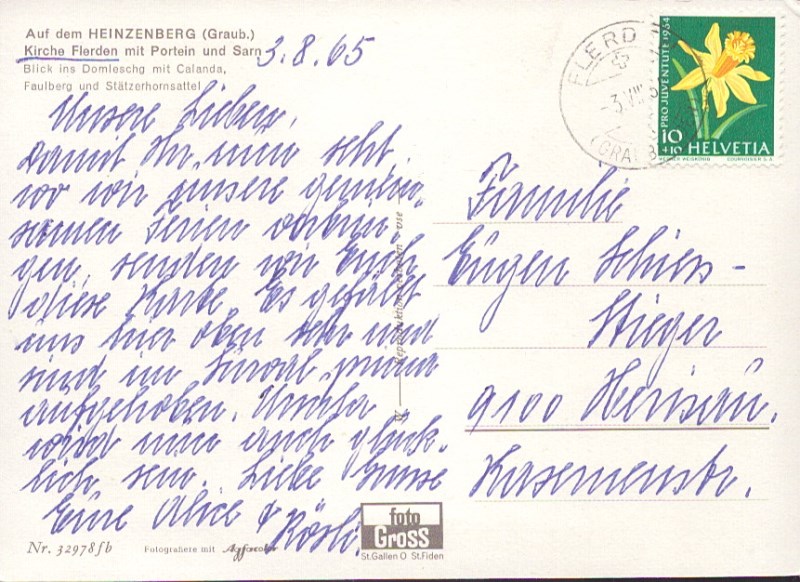 Auf dem HEINZENBERG (Graub.)
Kirche Flerden mit Portein und Sarn
Blick ins Domleschg mit Calanda,
Faulberg und Stätzerhornsattel
3.8.65
Unsere Lieben,
Damit Ihr nun seht
wo wir unsere gemein-
samen Ferien verbrin-
gen, senden wir Euch
diese Karte. Es gefällt
uns hier oben sehr und
sind im prima
aufgehoben. Ursula
wird nun auch glück-
lich sein. Liebe Grüsse
Eure Alice & Rösli.
FLERD
-3.VIII
(GRAUB
PRO JUVENTUTE 1964
10
+10 HELVETIA
COURVOISIER S.A.
Familie
Eugen Schiess-
Stieger
9100 Herisau.
Kasernenstr.
foto
GROSS
St.Gallen O St.Fiden
Nr. 32978fb
Fotografiere mit Agfacolor